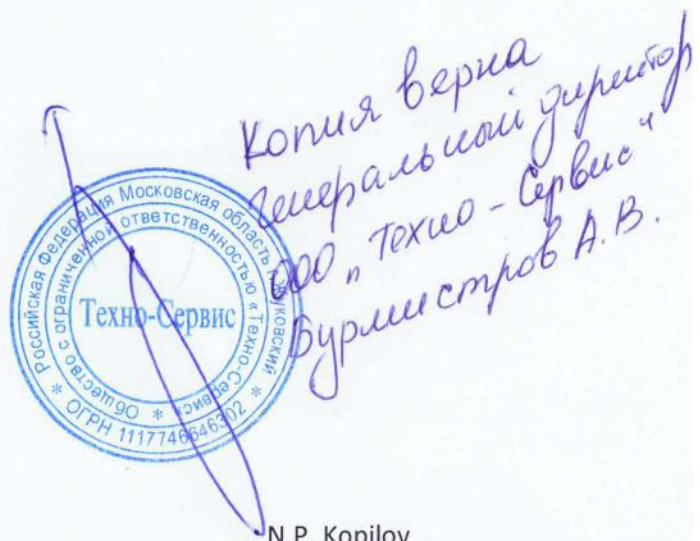 Копия верна
Генеральный директор
ООО „Техно-Сервис"
Бурмистров А.В.
Российская Федерация Московская область г. Жуковский
Общество с ограниченной ответственностью «Техно-Сервис»
Техно-Сервис
ОГРН 1117746646302
N.P. Kopilov